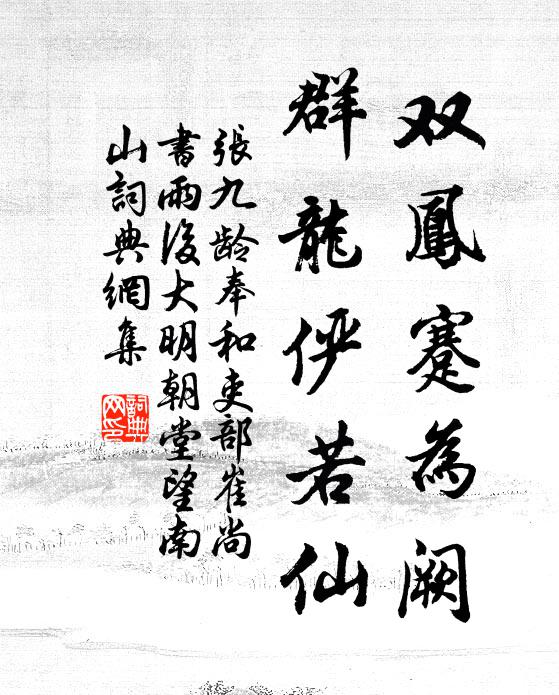 双鳳蹇為阙
群龍俨若仙
張九龄奉和吏部崔尚
書雨後大明朝堂望南
山詞典網集
詞典
网印